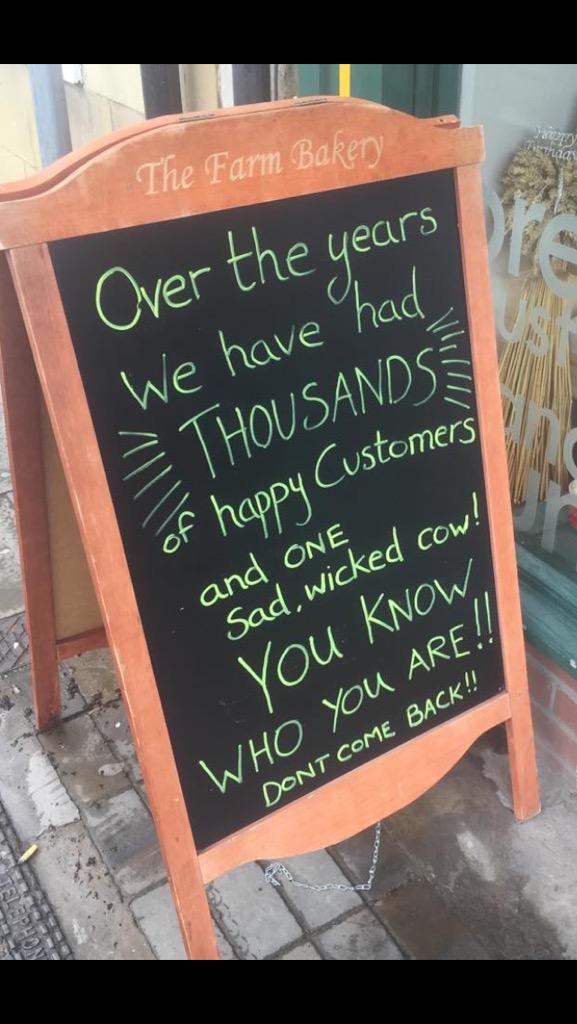 The Farm Bakery
Over the years
We have had
THOUSANDS
of happy Customers
and ONE
Sad, wicked cow!
YOU KNOW
WHO YOU ARE!!
DONT COME BACK!!